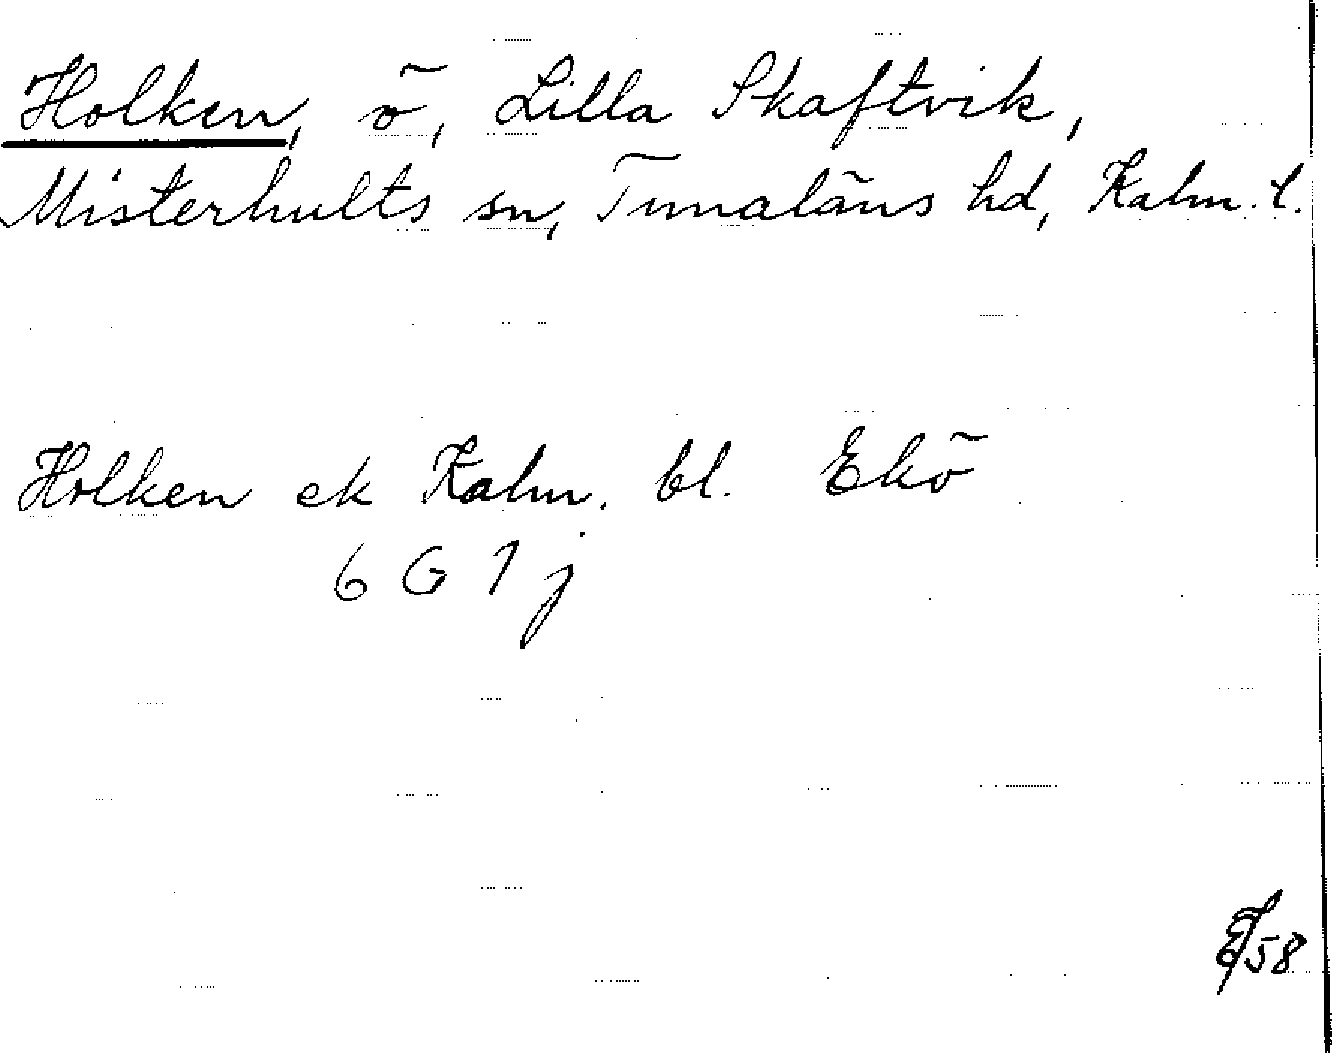 Holken, ö, Lilla Skaftvik,
Misterhults sn, Tunaläns hd, Kalm. l.
Holken ek Kalm. bl. Ekö
6 G 1 j
58